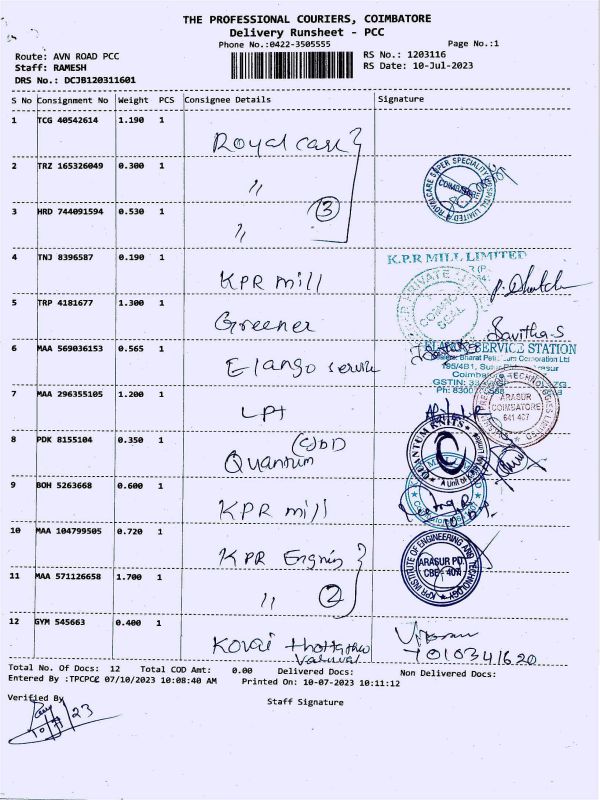 THE PROFESSIONAL COURIERS, COIMBATORE
Delivery Runsheet - PCC
Phone No.:0422-3505555
Page No.:1
Route: AVN ROAD PCC
RS No.: 1203116
Staff: RAMESH
RS Date: 10-Jul-2023
DRS No.: DCJB120311601
S No Consignment No Weight PCS Consignee Details Signature
1 TCG 40542614 1.190 1
Royal care
2 TRZ 165326049 0.300 1
"
3 HRD 744091594 0.530 1
③
"
4 TNJ 8396587 0.190 1
K.P.R MILL LIMITED
KPR mill
5 TRP 4181677 1.300 1
Greener
Savitha-S
6 MAA 569036153 0.565 1
SERVICE STATION
Elango service
7 MAA 296355105 1.200 1
ARASUR
COIMBATORE
641 407
LPT
8 PDK 8155104 0.350 1
QUANTUM KNITS
Quantum
9 BOH 5263668 0.600 1
KPR mill
10 MAA 104799505 0.720 1
KPR INSTITUTE OF ENGINEERING AND TECHNOLOGY
ARASUR PO.
CBE - 407
KPR Engnig
11 MAA 571126658 1.700 1
" ②
12 GYM 545663 0.400 1
Kovai
Total No. Of Docs: 12 Total COD Amt: 0.00 Delivered Docs: Non Delivered Docs:
Entered By :TPCPCC 07/10/2023 10:08:40 AM Printed On: 10-07-2023 10:11:12
Verified By
Staff Signature